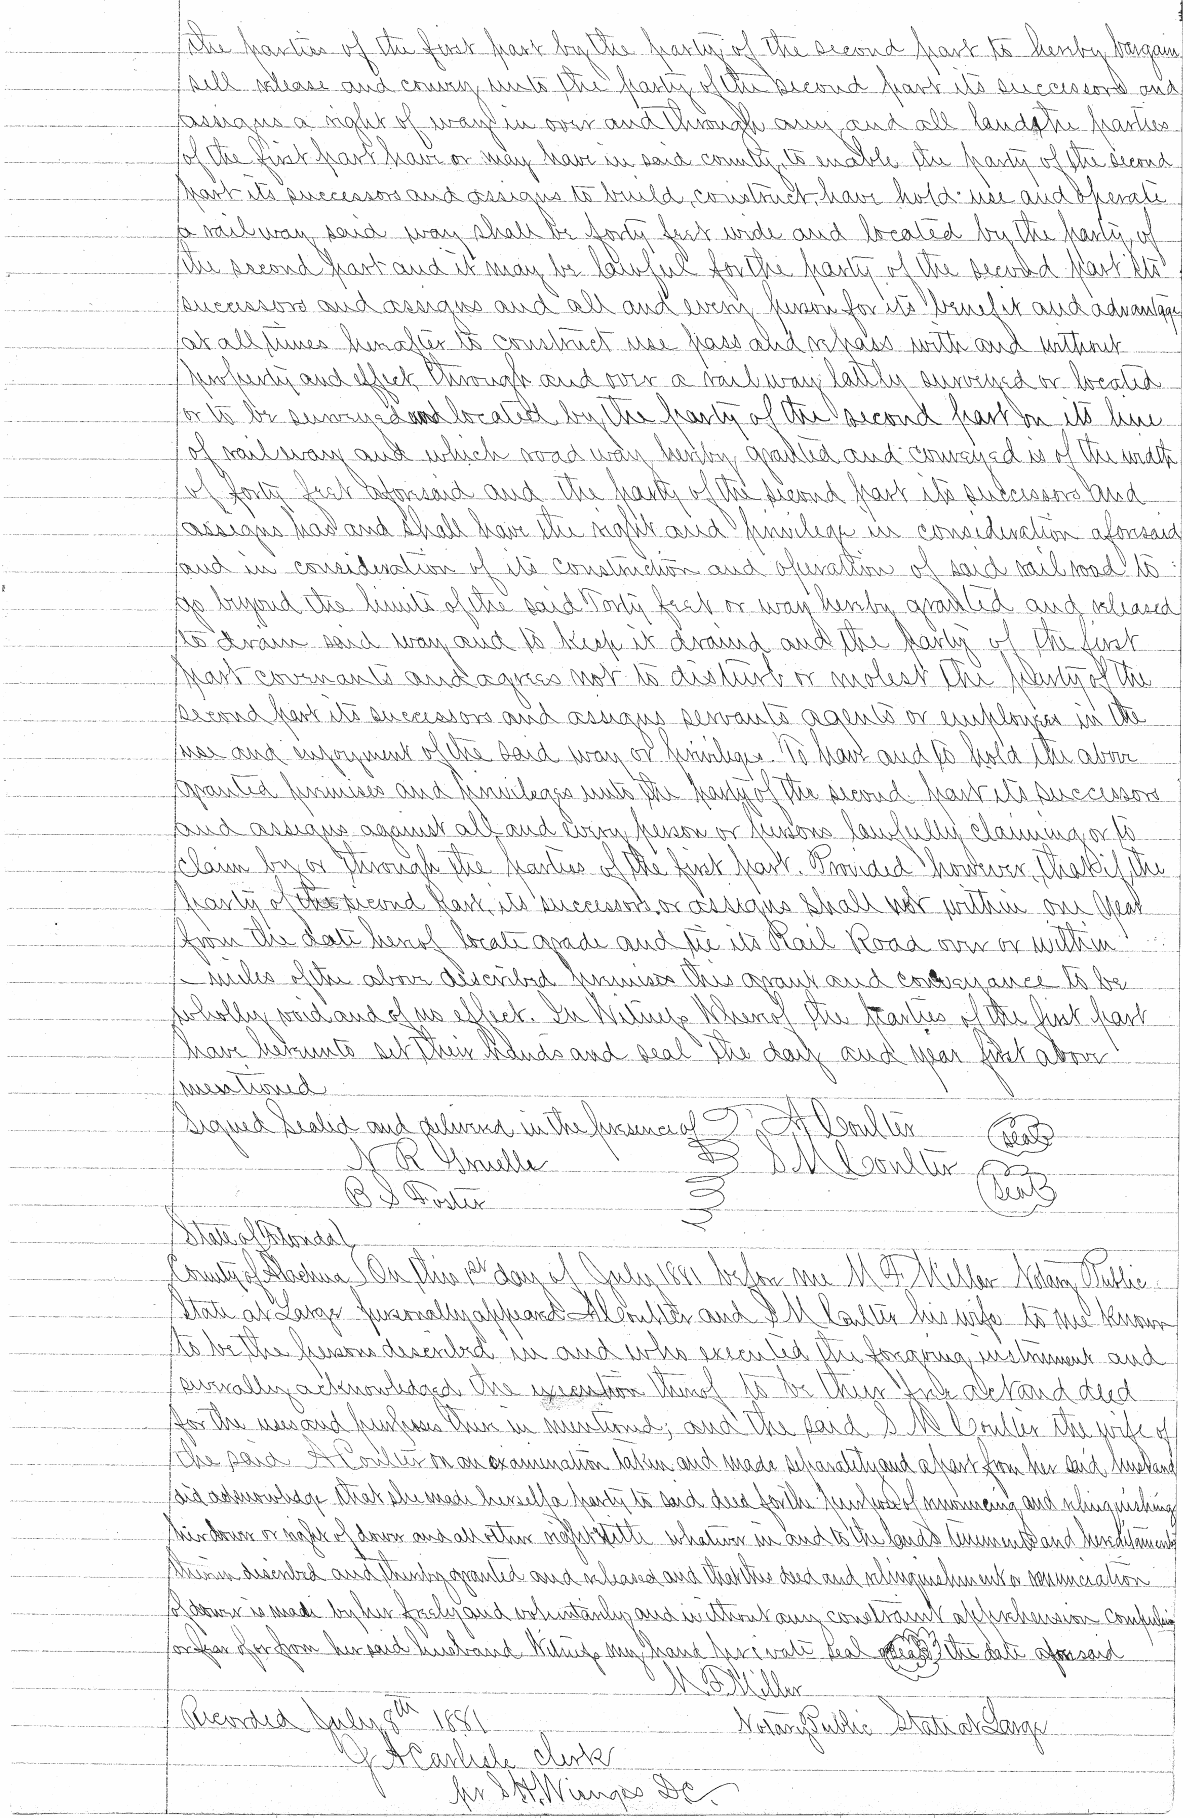 the parties of the first part by the party of the second part to hereby bargain
sell release and convey unto the party of the second part its successors and
assigns a right of way in over and through any and all lands the parties
of the first part have or may have in said county, to enable the party of the second
part its successors and assigns to build, construct, have hold use and operate
a rail way said way shall be forty feet wide and located by the party of
the second part and it may be lawful for the party of the second part its
successors and assigns and all and every person for its benefit and advantage
at all times hereafter to construct use pass and repass with and without
property and effect, through and over a rail way lately surveyed or located
or to be surveyed and located by the party of the second part on its line
of rail way and which road way hereby granted and conveyed is of the width
of forty feet aforesaid and the party of the second part its successors and
assigns has and shall have the right and privilege in consideration aforesaid
and in consideration of its construction and operation of said rail road to
go beyond the limits of the said Forty feet or way hereby granted and released
to drain said way and to keep it draind and the party of the first
part covenants and agrees not to disturb or molest the party of the
second part its successors and assigns servants agents or employees in the
use and enjoyment of the said way or privilege. To have and to hold the above
granted premises and privileges unto the party of the second part its successors
and assigns against all and every person or persons lawfully claiming or to
claim by or through the parties of the first part. Provided however, that if the
party of the second part, its successors or assigns shall not within one year
from the date hereof locate grade and tie its Rail Road over or within
– miles of the above described premises this grant and conveyance to be
wholly void and of no effect. In Witness Whereof the parties of the first part
have hereunto set their hands and seal the day and year first above
mentioned
Signed Sealed and delivered in the presence of A Coulter seal
N R Gruelle S M Coulter seal
B S Foster
State of Florida
County of Alachua On this 1st day of July 1881 before me M F Miller Notary Public
State at Large personally appeared A Coulter and S M Coulter his wife to me known
to be the persons described in and who executed the forgoing instrument and
severally acknowledged the execution thereof to be their free act and deed
for the uses and purposes therein mentioned; and the said S M Coulter the wife of
the said A Coulter on an examination taken and made separately and apart from her said husband
did acknowledge that she made herself a party to said deed for the purpose of renouncing and relinquishing
her dower or right of dower and all other right title whatever in and to the lands tenements and hereditaments
therein described and thereby granted and released and that the deed and relinquishment or renunciation
of dower is made by her freely and voluntarily and without any constraint apprehension compulsion
or fear of or from her said husband Witness my hand private seal seal the date aforesaid
M F Miller
Recorded July 8th 1881 Notary Public State at Large
J A Carlisle Clerk
per S H Wienges D.C.